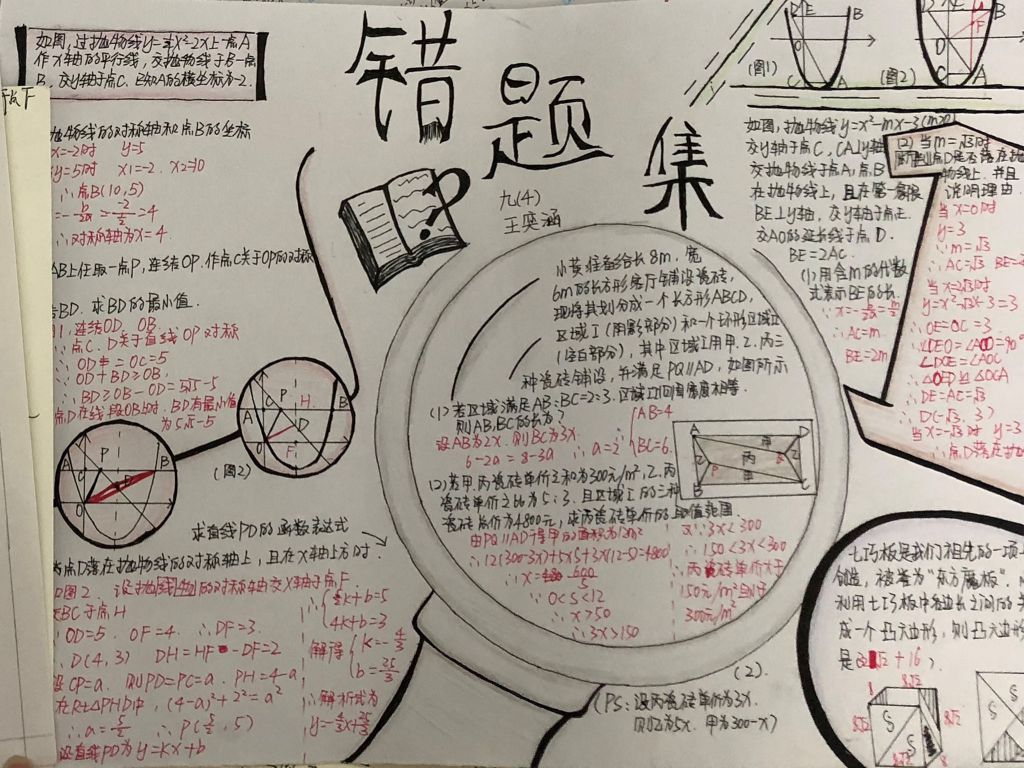 错题集
九(4)
王奕涵
如图,过抛物线y=¼x²-2x上一点A
作x轴的平行线,交抛物线于另一点
B,交y轴于点C,已知A的横坐标为-2.
抛物线的对称轴和点B的坐标
x=-2时 y=5
y=5时 x₁=-2. x₂=10
∴点B(10,5)
∴对称轴为x=4.
AB上任取一点P,连结OP,作点C关于OP的对称
BD. 求BD的最小值.
连结OD、OB
∵点C、D关于直线OP对称
∴OD=OC=5
∵OD+BD≥OB.
∴BD≥OB-OD=5√5-5
点D在线段OB上时,BD有最小值
为5√5-5
A C P H B
O D F
(图2)
A C P B
O D
求直线PD的函数表达式
点D落在抛物线的对称轴上,且在x轴上方时.
图2. 设抛物线的对称轴交x轴于点F.
交BC于点H
OD=5. OF=4. ∴DF=3.
∴D(4,3) DH=HF-DF=2
设CP=a. 则PD=PC=a. PH=4-a
在Rt△PHD中, (4-a)²+2²=a²
∴a=5/2 ∴P(5/2,5)
设直线PD为y=kx+b
∴{5/2k+b=5
4k+b=3
解得{k=-4/3
b=25/3
∴解析式为
y=-4/3x+25/3
小黄准备给长8m,宽
6m的长方形客厅铺设瓷砖,
现将其划分成一个长方形ABCD,
区域I(阴影部分)和一个环形区域II
(空白部分),其中区域I用甲、乙、丙三
种瓷砖铺设,并满足PQ∥AD,如图所示
(1)若区域满足AB:BC=2:3.区域II四周宽度相等.
则AB,BC的长为?
设AB为2x.则BC为3x.
6-2a=8-3a ∴a=2 {AB=4
BC=6.
A 甲 D
乙 P 丙 乙
B 甲 C
(2)若甲丙瓷砖单价之和为300元/m²,乙、丙
瓷砖单价之比为5:3,且区域I的三种
瓷砖总价为4800元,求丙瓷砖单价的取值范围.
由PQ∥AD得甲的面积为12m²
∴12(300-3x)+5x·S+3x(12-S)=4800
∵0<S<12
∴x>50
∴3x>150
又∵3x<300
∴150<3x<300
∴丙瓷砖单价大于
150元/m²且小于
300元/m²
(2).
(PS:设丙瓷砖单价为3x.
则乙为5x. 甲为300-x)
D E B
O
C A
(图1)
D E B
F
O
C A
(图2)
如图,抛物线y=x²-mx-3(m>0)
交y轴于点C, CA⊥y轴
交抛物线于点A,点B
在抛物线上,且在第一象限
BE⊥y轴,交y轴于点E.
交AO的延长线于点D.
BE=2AC.
(1)用含m的代数
式表示BE的长.
∴AC=m
BE=2m
(2)当m=√3时
判断点D是否落在抛
物线上,并且
说明理由.
当x=0时
y=3
∴m=√3
∴AC=√3
当x=2√3时
y=x²-√3x-3=3
∴OE=OC=3
∠DEO=∠ACO=90
∠DOE=∠AOC
∴△OED≌△OCA
∴DE=AC=√3
∴D(-√3, 3)
当x=-√3时 y=3
∴点D落在抛
七巧板是我们祖先的一项
创造,被誉为“东方魔板”.
利用七巧板中
成一个凸六边形,则凸六边形
是(32√2+16).
8 8√2
8√2 S 8√2
8√2 8